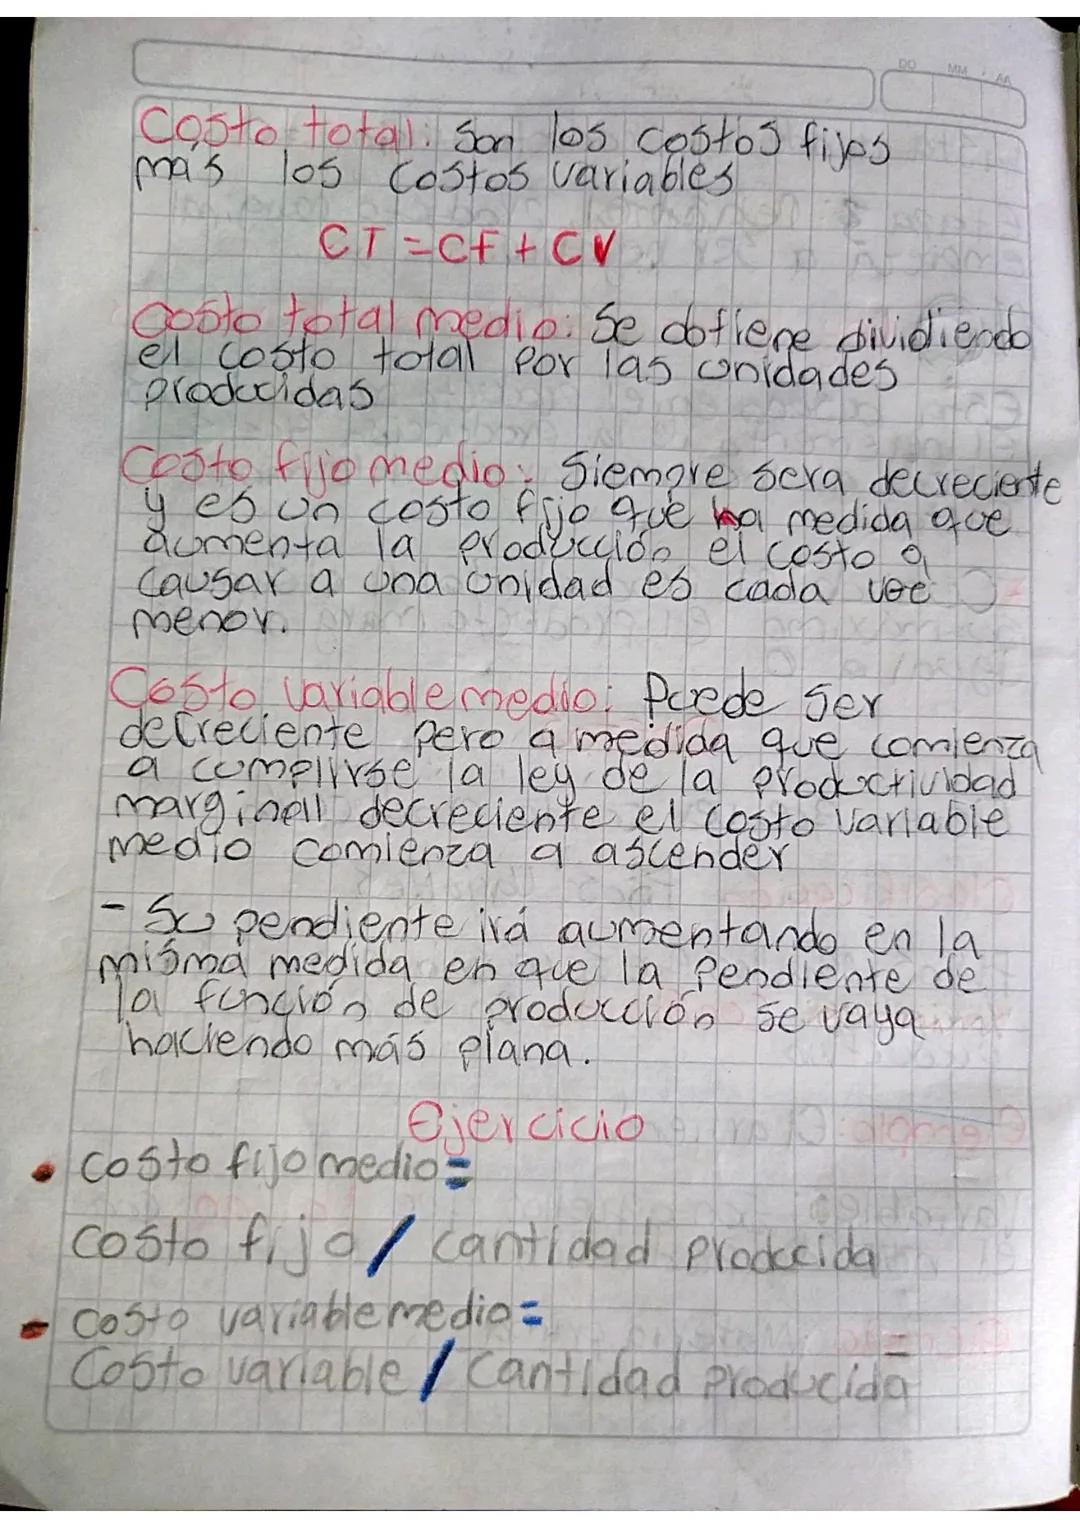 DD MM AA
Costo total: Son los costos fijos
más los costos variables
CT = CF + CV
Costo total medio: Se obtiene dividiendo
el costo total por las unidades
producidas
Costo fijo medio: Siempre sera decreciente
y es un costo fijo que a medida que
aumenta la producción el costo a
causar a una unidad es cada vee
menor.
Costo variable medio: Puede ser
decreciente pero a medida que comienza
a cumplirse la ley de la productividad
marginall decreciente el costo variable
medio comienza a ascender
- Su pendiente irá aumentando en la
misma medida en que la pendiente de
la función de producción se vaya
haciendo más plana.
Ejercicio
• costo fijo medio=
costo fijo / cantidad producida
- costo variable medio=
Costo variable / Cantidad producida